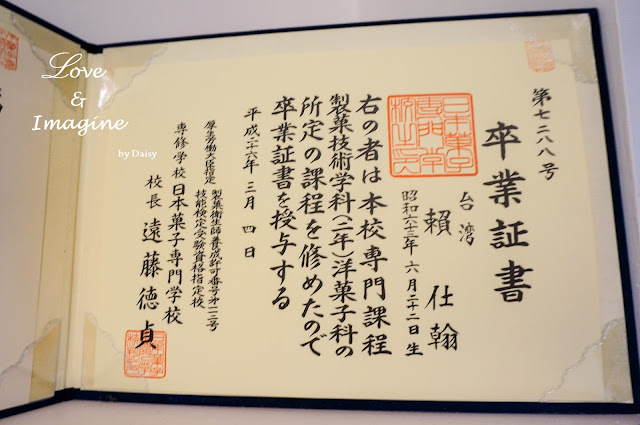 第七二八八号
卒業証書
台湾
賴仕翰
昭和六十三年六月二十二日生
右の者は本校専門課程
製菓技術学科(二年)洋菓子科の
所定の課程を修めたので
卒業証書を授与する
平成二十六年三月四日
厚生労働大臣指定
製菓衛生師養成許可番号第一二三号
技能検定受験資格指定校
専修学校日本菓子専門学校
校長遠藤徳貞
Love
&
Imagine
by Daisy